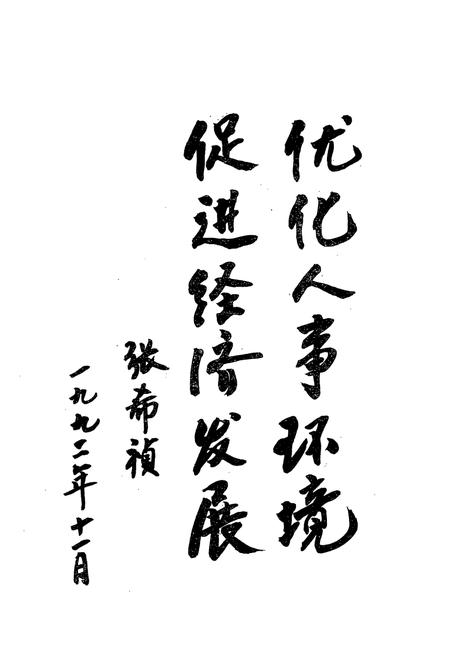 优化人事环境
促进经济发展
张希祯
一九九二年十一月